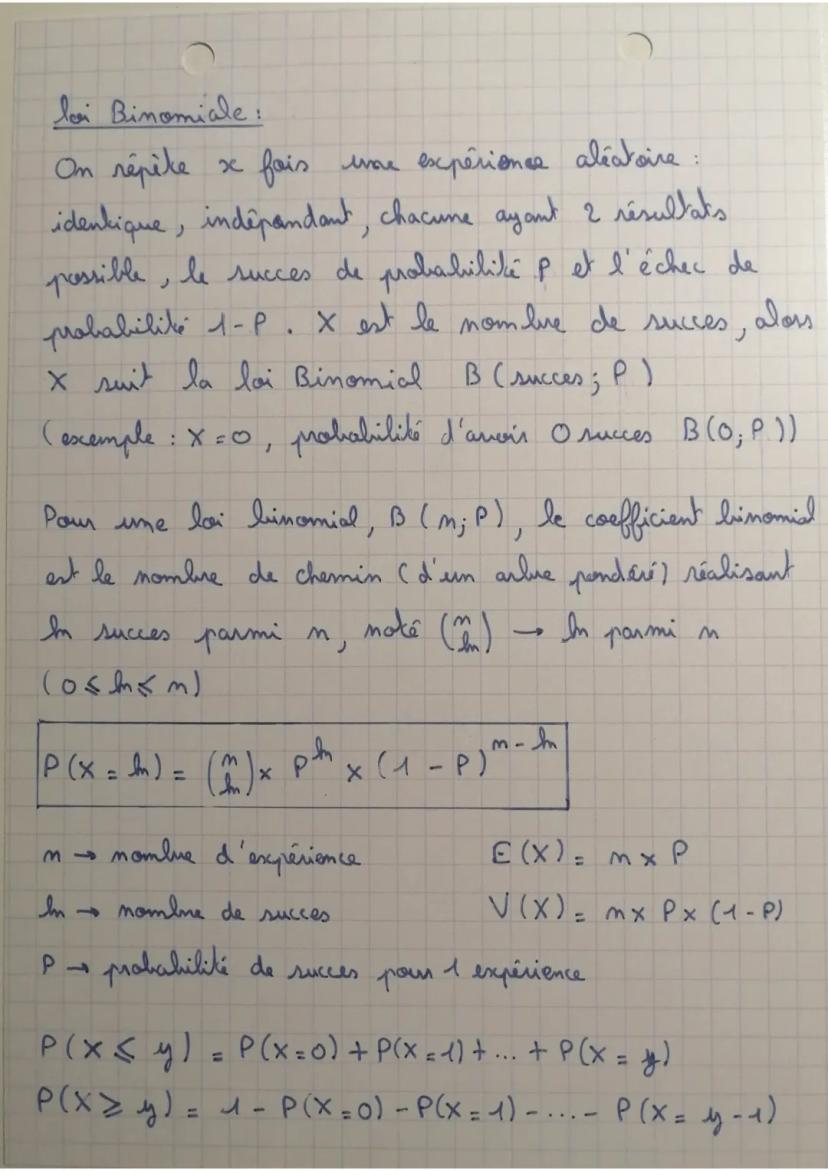 loi Binomiale :
On répète x fois une expérience aléatoire :
identique, indépandant, chacune ayant 2 résultats
possible, le succes de probabilité P et l'échec de
probabilité 1-P. X est le nombre de succes, alors
X suit la loi Binomial B(succes; P)
(exemple : X=0, probabilité d'avoir 0 succes B(0; P))
Pour une loi binomial, B(n; P), le coefficient binomial
est le nombre de chemin (d'un arbre pondéré) réalisant
k succes parmi n, noté (n k) → k parmi n
(0 ≤ k ≤ n)
P(X = k) = (n k) × P^k × (1 - P)^(n - k)
n → nombre d'expérience E(X) = n × P
k → nombre de succes V(X) = n × P × (1 - P)
P → probabilité de succes pour 1 expérience
P(X ≤ y) = P(X=0) + P(X=1) + ... + P(X = y)
P(X ≥ y) = 1 - P(X=0) - P(X=1) - .... - P(X = y-1)